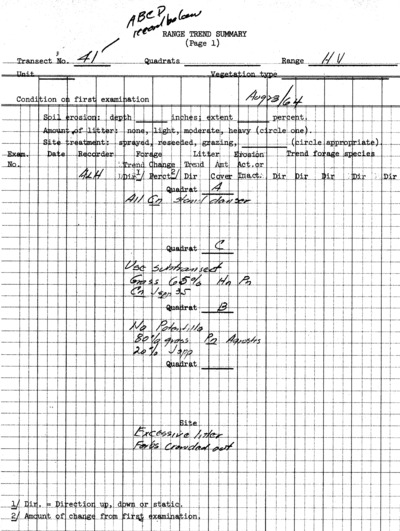 ABCD
record below
RANGE TREND SUMMARY
(Page 1)
Transect No. 41 Quadrats Range H V
Unit Vegetation type
Condition on first examination Aug 23/64
Soil erosion: depth inches; extent percent.
Amount of litter: none, light, moderate, heavy (circle one).
Site treatment: sprayed, reseeded, grazing, (circle appropriate).
Exam. Date Recorder Forage Litter Erosion Trend forage species
No. Trend Change Trend Amt Act.or
ALH Dir 1/ Perct 2/ Dir Cover Inact. Dir Dir Dir Dir Dir Dir
Quadrat A
All Cn stand denser
Quadrat C
Use subtransect
Grass 65% Hn Pn
Cn Japp 35
Quadrat B
No Potentilla
80% grass Pn Agrostis
20% Japp
Quadrat
Site
Excessive litter
Forbs crowded out
1/ Dir. = Direction up, down or static.
2/ Amount of change from first examination.